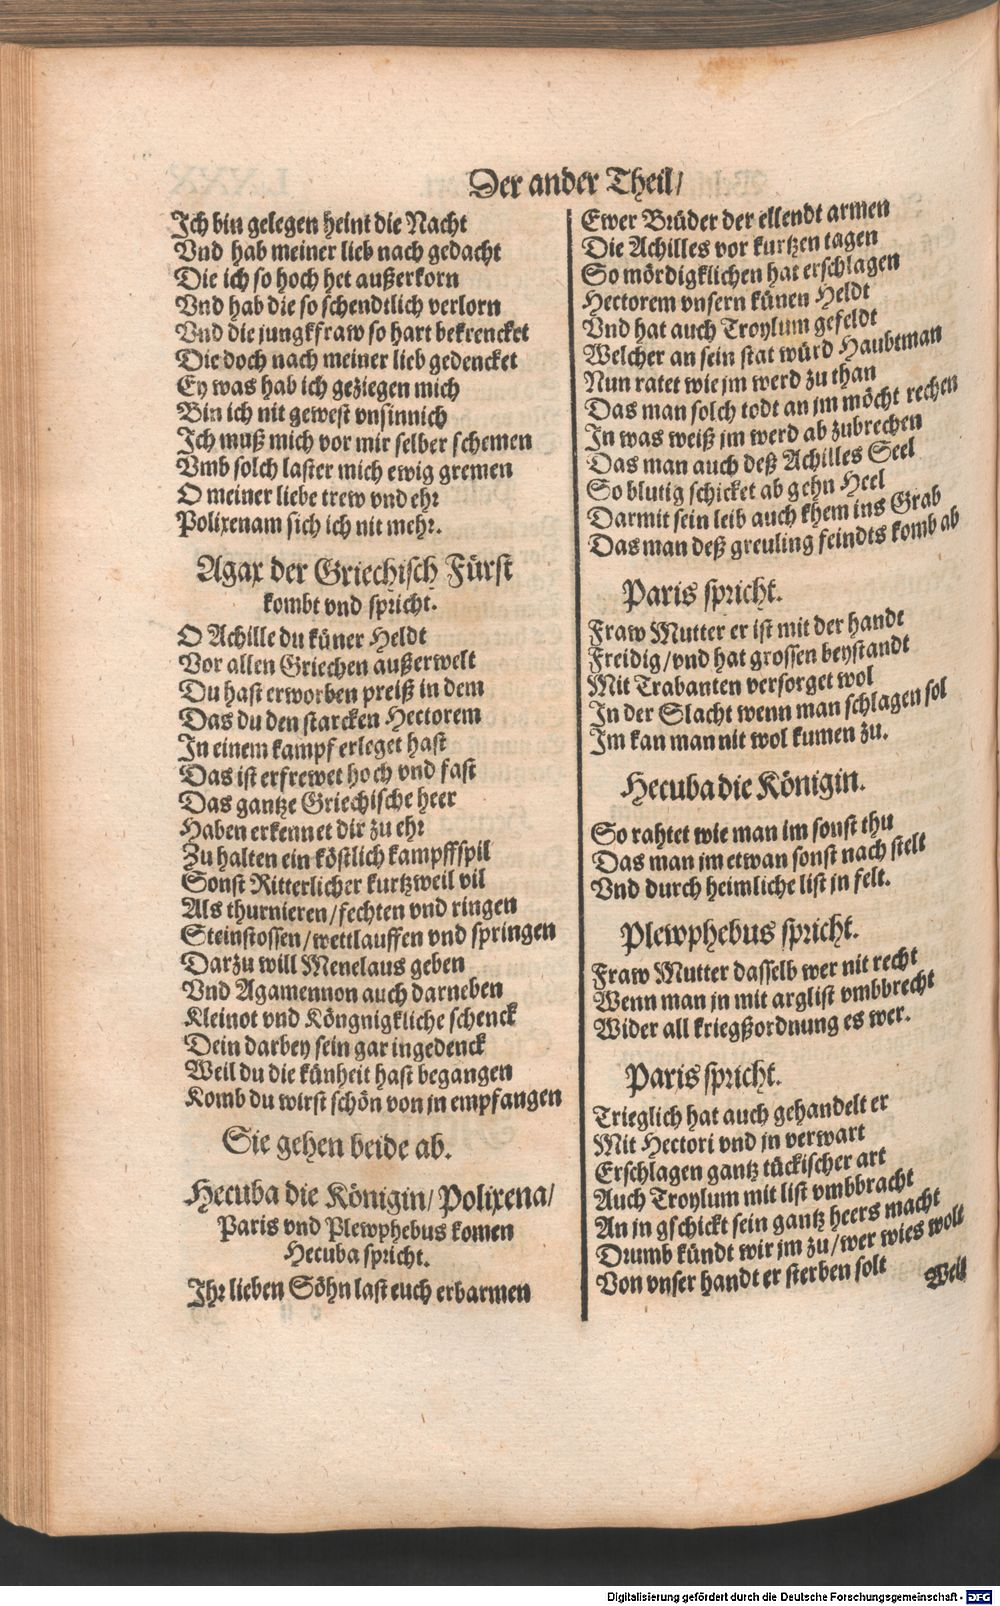 Der ander Theil/
Ich bin gelegen heint die Nacht
Vnd hab meiner lieb nach gedacht
Die ich so hoch het außerkorn
Vnd hab die so schendtlich verlorn
Vnd die jungkfraw so hart bekrencket
Die doch nach meiner lieb gedencket
Ey was hab ich geziegen mich
Bin ich nit gewest vnsinnich
Ich muß mich vor mir selber schemen
Vmb solch laster mich ewig gremen
O meiner liebe trew vnd ehr
Polixenam sich ich nit mehr.
Agax der Griechisch Fürst
kombt vnd spricht.
O Achille du küner Heldt
Vor allen Griechen außerwelt
Du hast erworben preiß in dem
Das du den starcken Hectorem
In einem kampf erleget hast
Das ist erfrewet hoch vnd fast
Das gantze Griechische heer
Haben erkennet dir zu ehr
Zu halten ein köstlich kampffspil
Sonst Ritterlicher kurtzweil vil
Als thurnieren/fechten vnd ringen
Steinstossen/wettlauffen vnd springen
Darzu will Menelaus geben
Vnd Agamennon auch darneben
Kleinot vnd Köngnigkliche schenck
Dein darbey sein gar ingedenck
Weil du die künheit hast begangen
Komb du wirst schön von jn empfangen
Sie gehen beide ab.
Hecuba die Königin/Polixena/
Paris vnd Plewphebus komen
Hecuba spricht.
Ihr lieben Söhn last euch erbarmen
Ewer Brüder der ellendt armen
Die Achilles vor kurtzen tagen
So mördigklichen hat erschlagen
Hectorem vnsern künen Heldt
Vnd hat auch Troylum gefeldt
Welcher an sein stat würd Haubtman
Nun ratet wie jm werd zu than
Das man solch todt an jm möcht rechen
In was weiß jm werd ab zubrechen
Das man auch deß Achilles Seel
So blutig schicket ab gehn Heel
Darmit sein leib auch khem ins Grab
Das man deß greuling feindts komb ab
Paris spricht.
Fraw Mutter er ist mit der handt
Freidig/vnd hat grossen beystandt
Mit Trabanten versorget wol
In der Slacht wenn man schlagen sol
Im kan man nit wol kumen zu.
Hecuba die Königin.
So rahtet wie man im sonst thu
Das man jm etwan sonst nach stelt
Vnd durch heimliche list jn felt.
Plewphebus spricht.
Fraw Mutter dasselb wer nit recht
Wenn man jn mit arglist vmbbrecht
Wider all kriegßordnung es wer.
Paris spricht.
Trieglich hat auch gehandelt er
Mit Hectori vnd jn verwart
Erschlagen gantz tückischer art
Auch Troylum mit list vmbbracht
An jn gschickt sein gantz heers macht
Drumb kündt wir jm zu/wer wies wolt
Von vnser handt er sterben solt
Weil
Digitalisierung gefördert durch die Deutsche Forschungsgemeinschaft - DFG